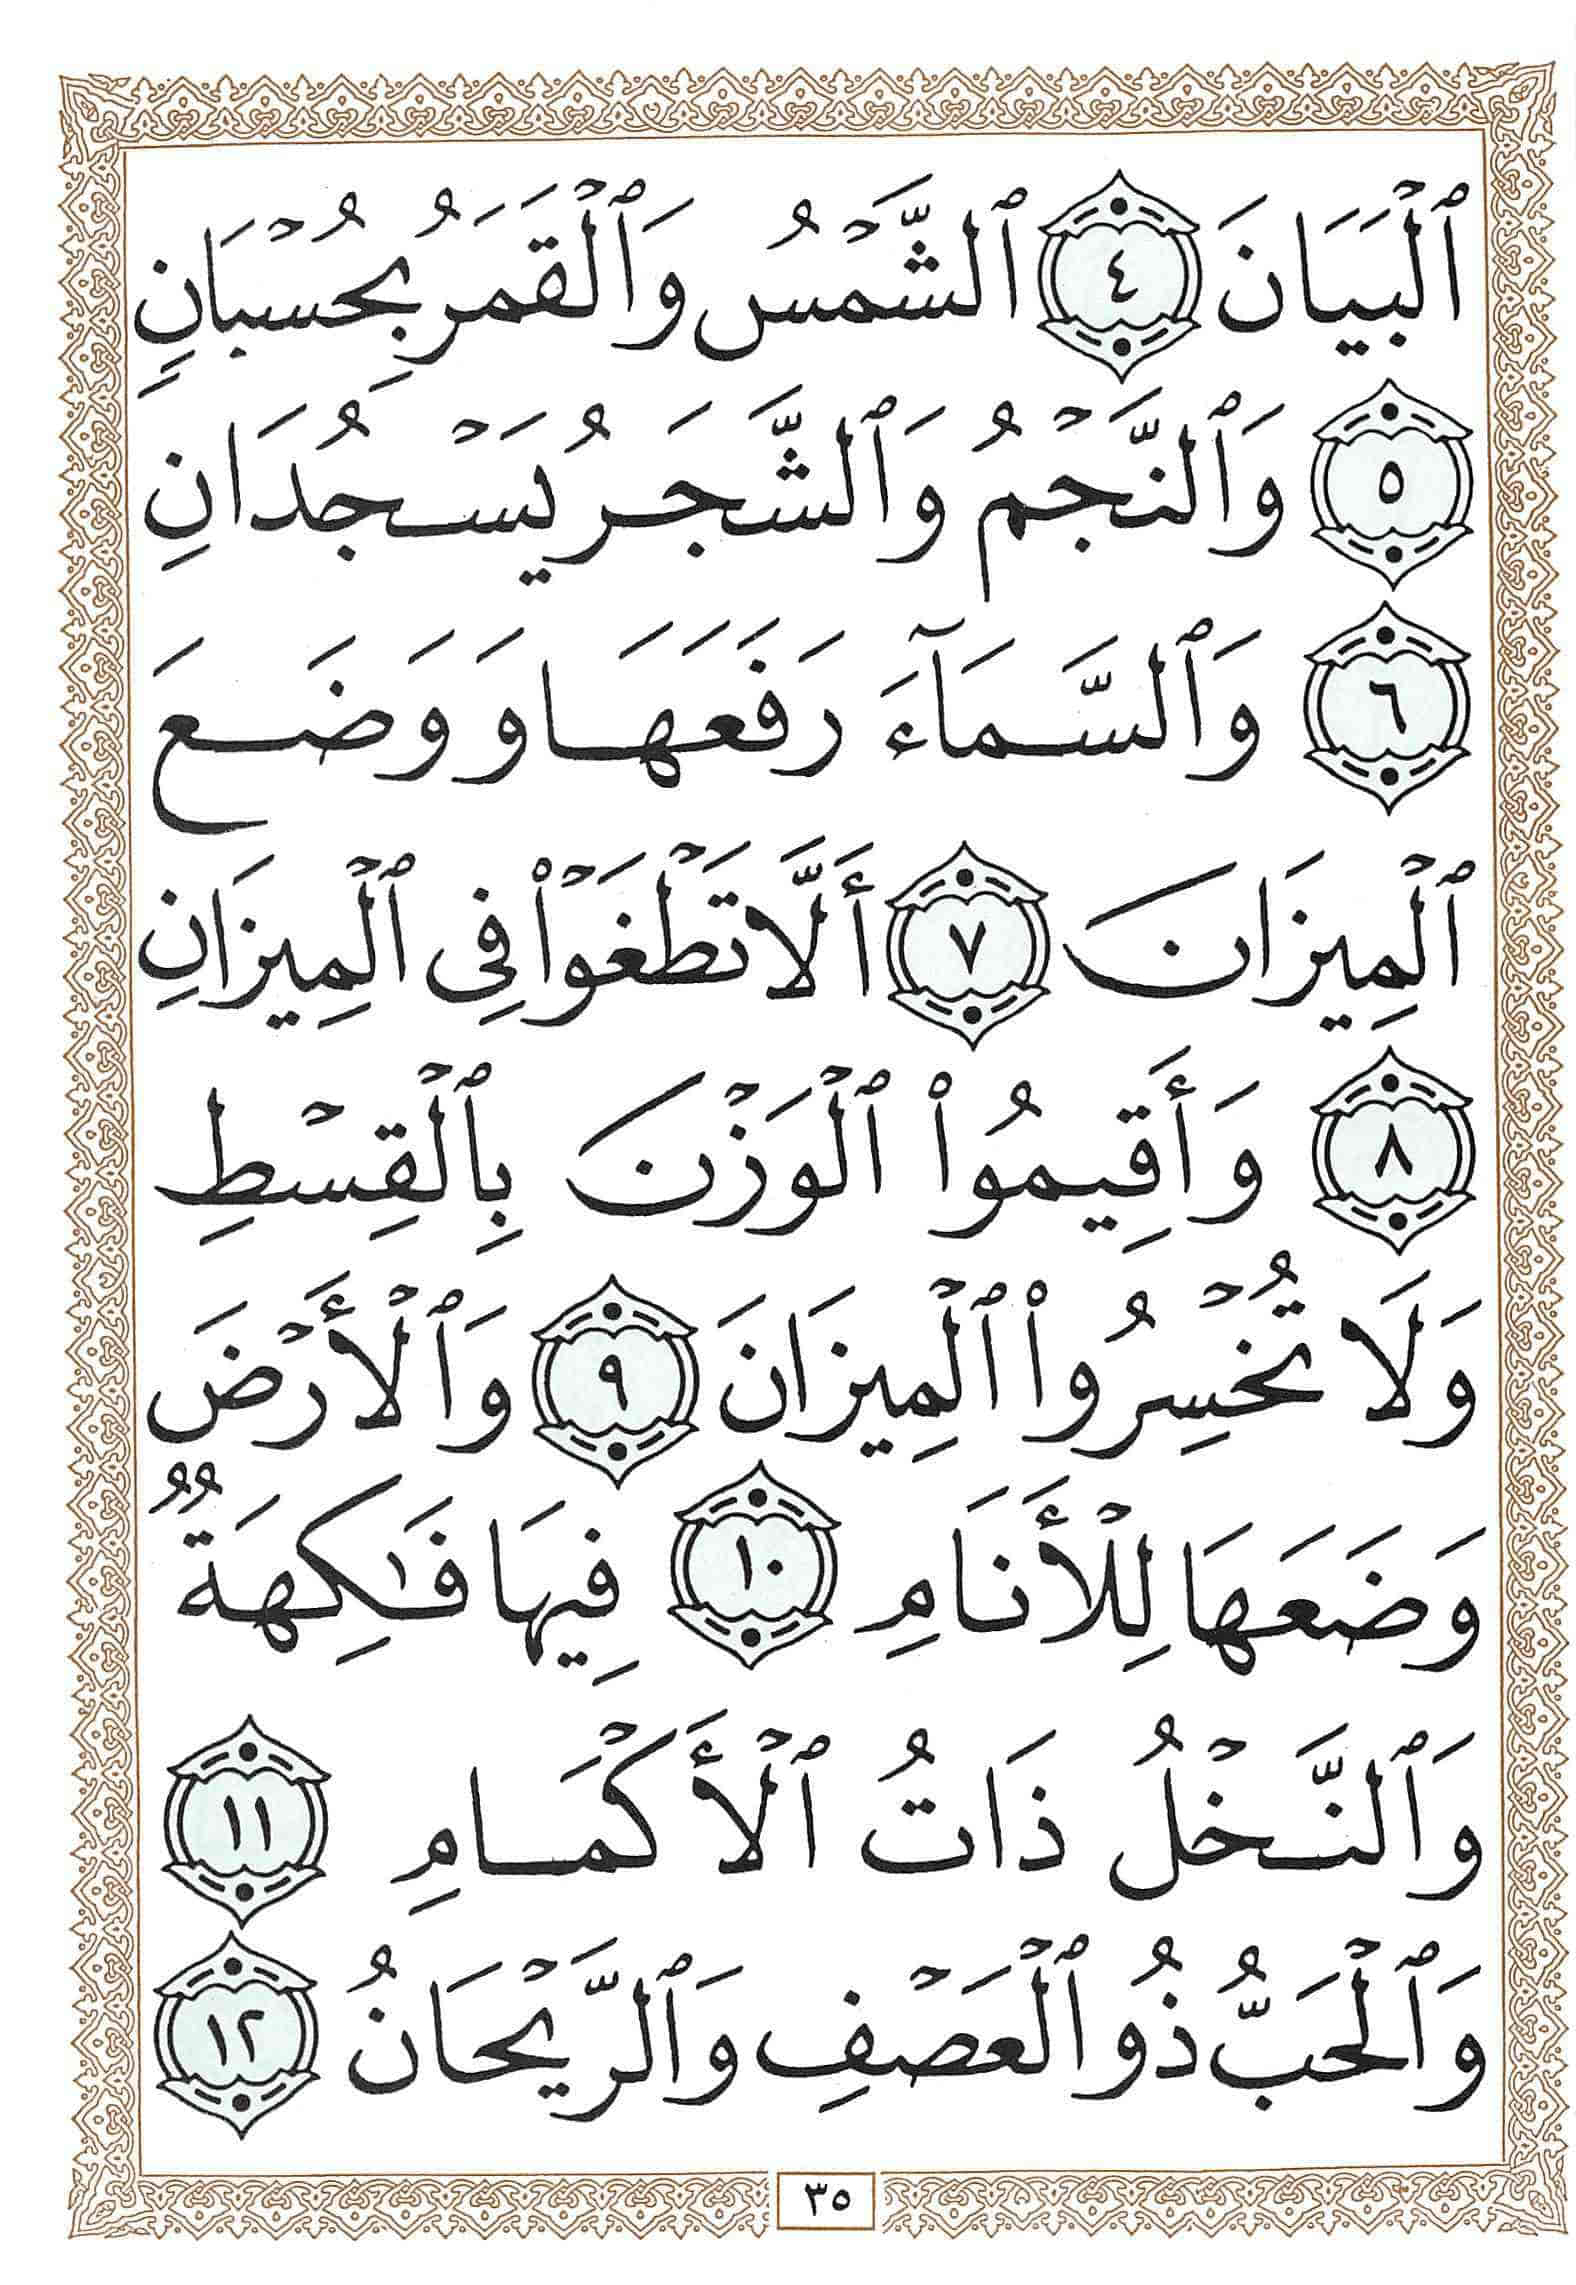 ٱلْبَيَانَ ٤ ٱلشَّمْسُ وَٱلْقَمَرُ بِحُسْبَانٍ
٥ وَٱلنَّجْمُ وَٱلشَّجَرُ يَسْجُدَانِ
٦ وَٱلسَّمَآءَ رَفَعَهَا وَوَضَعَ
ٱلْمِيزَانَ ٧ أَلَّا تَطْغَوْا۟ فِى ٱلْمِيزَانِ
٨ وَأَقِيمُوا۟ ٱلْوَزْنَ بِٱلْقِسْطِ
وَلَا تُخْسِرُوا۟ ٱلْمِيزَانَ ٩ وَٱلْأَرْضَ
وَضَعَهَا لِلْأَنَامِ ١٠ فِيهَا فَٰكِهَةٌ
وَٱلنَّخْلُ ذَاتُ ٱلْأَكْمَامِ ١١
وَٱلْحَبُّ ذُو ٱلْعَصْفِ وَٱلرَّيْحَانُ ١٢
٣٥